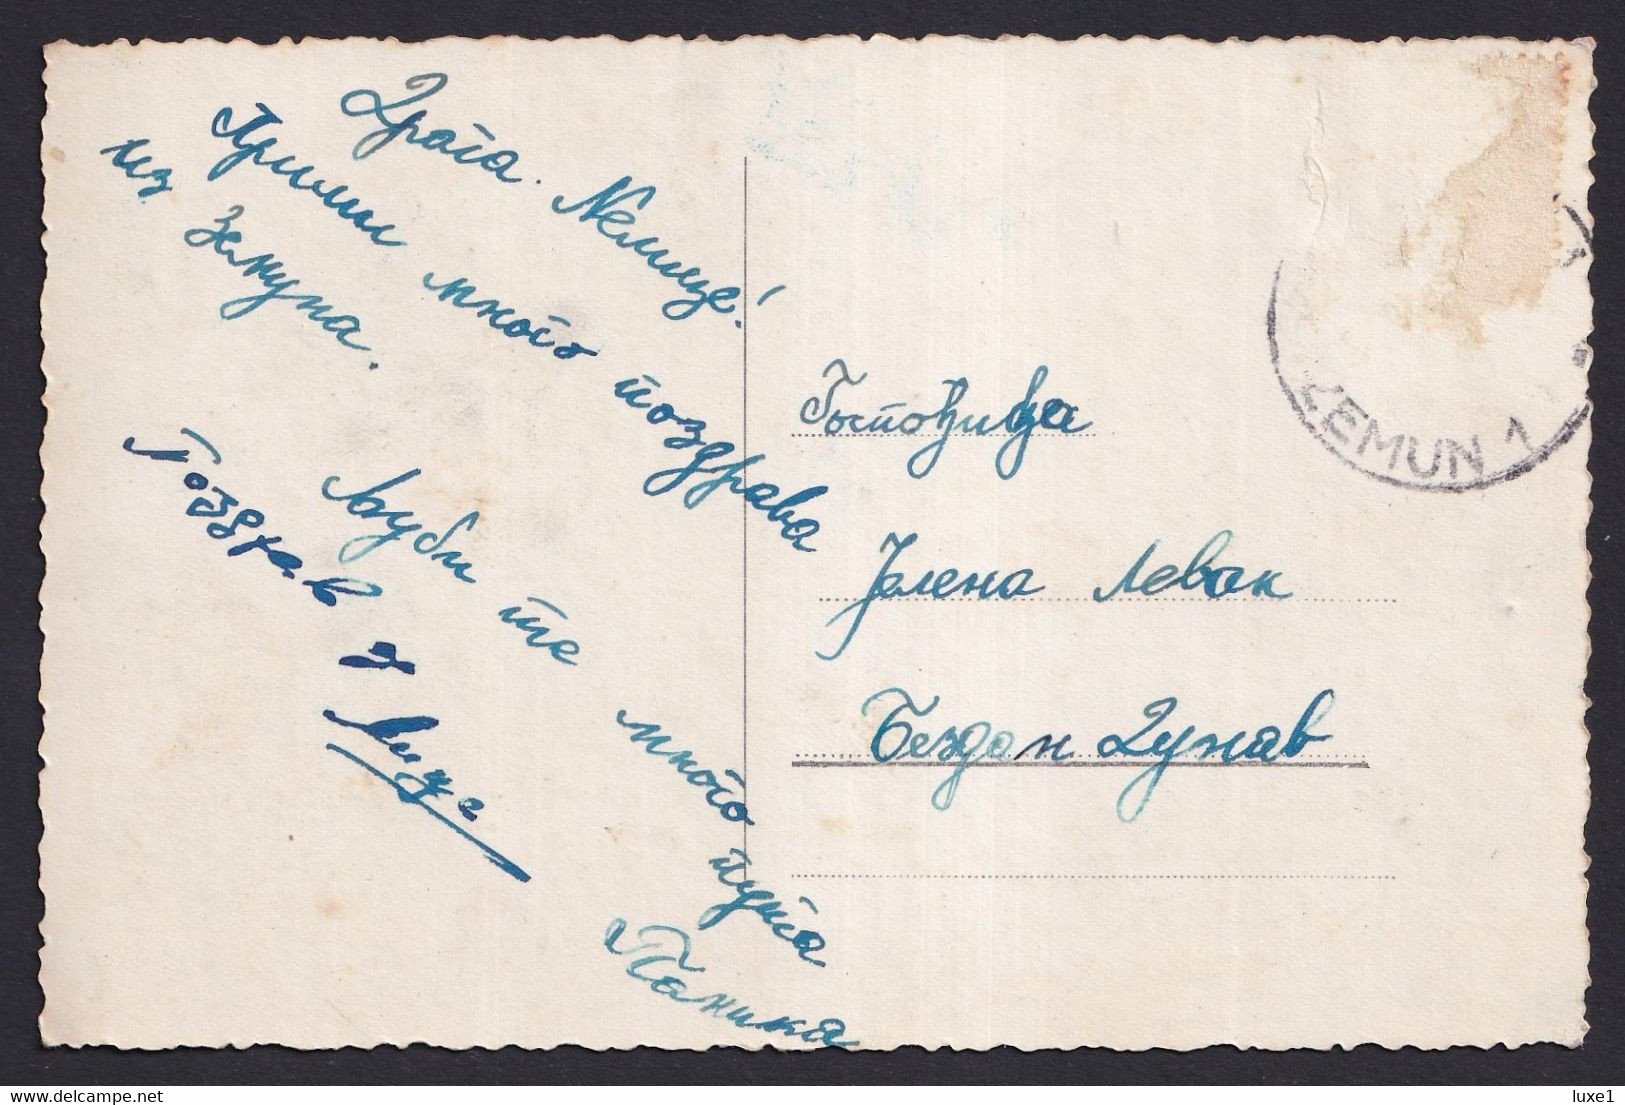 Драга Нелице!
Прими много поздрава
из Земуна.
Љуби те много пута
Таника
Поздрав
Госпођица
Јелена Левак
Бездан Дунав
ZEMUN 1
luxe1
delcampe.net